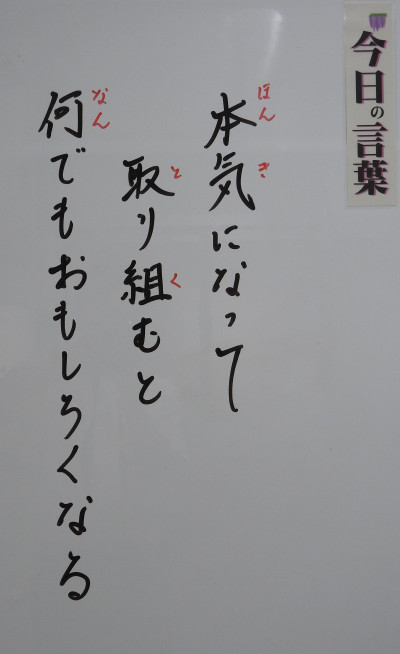 今日の言葉
ほんき
本気になって
とく
取り組むと
なん
何でもおもしろくなる